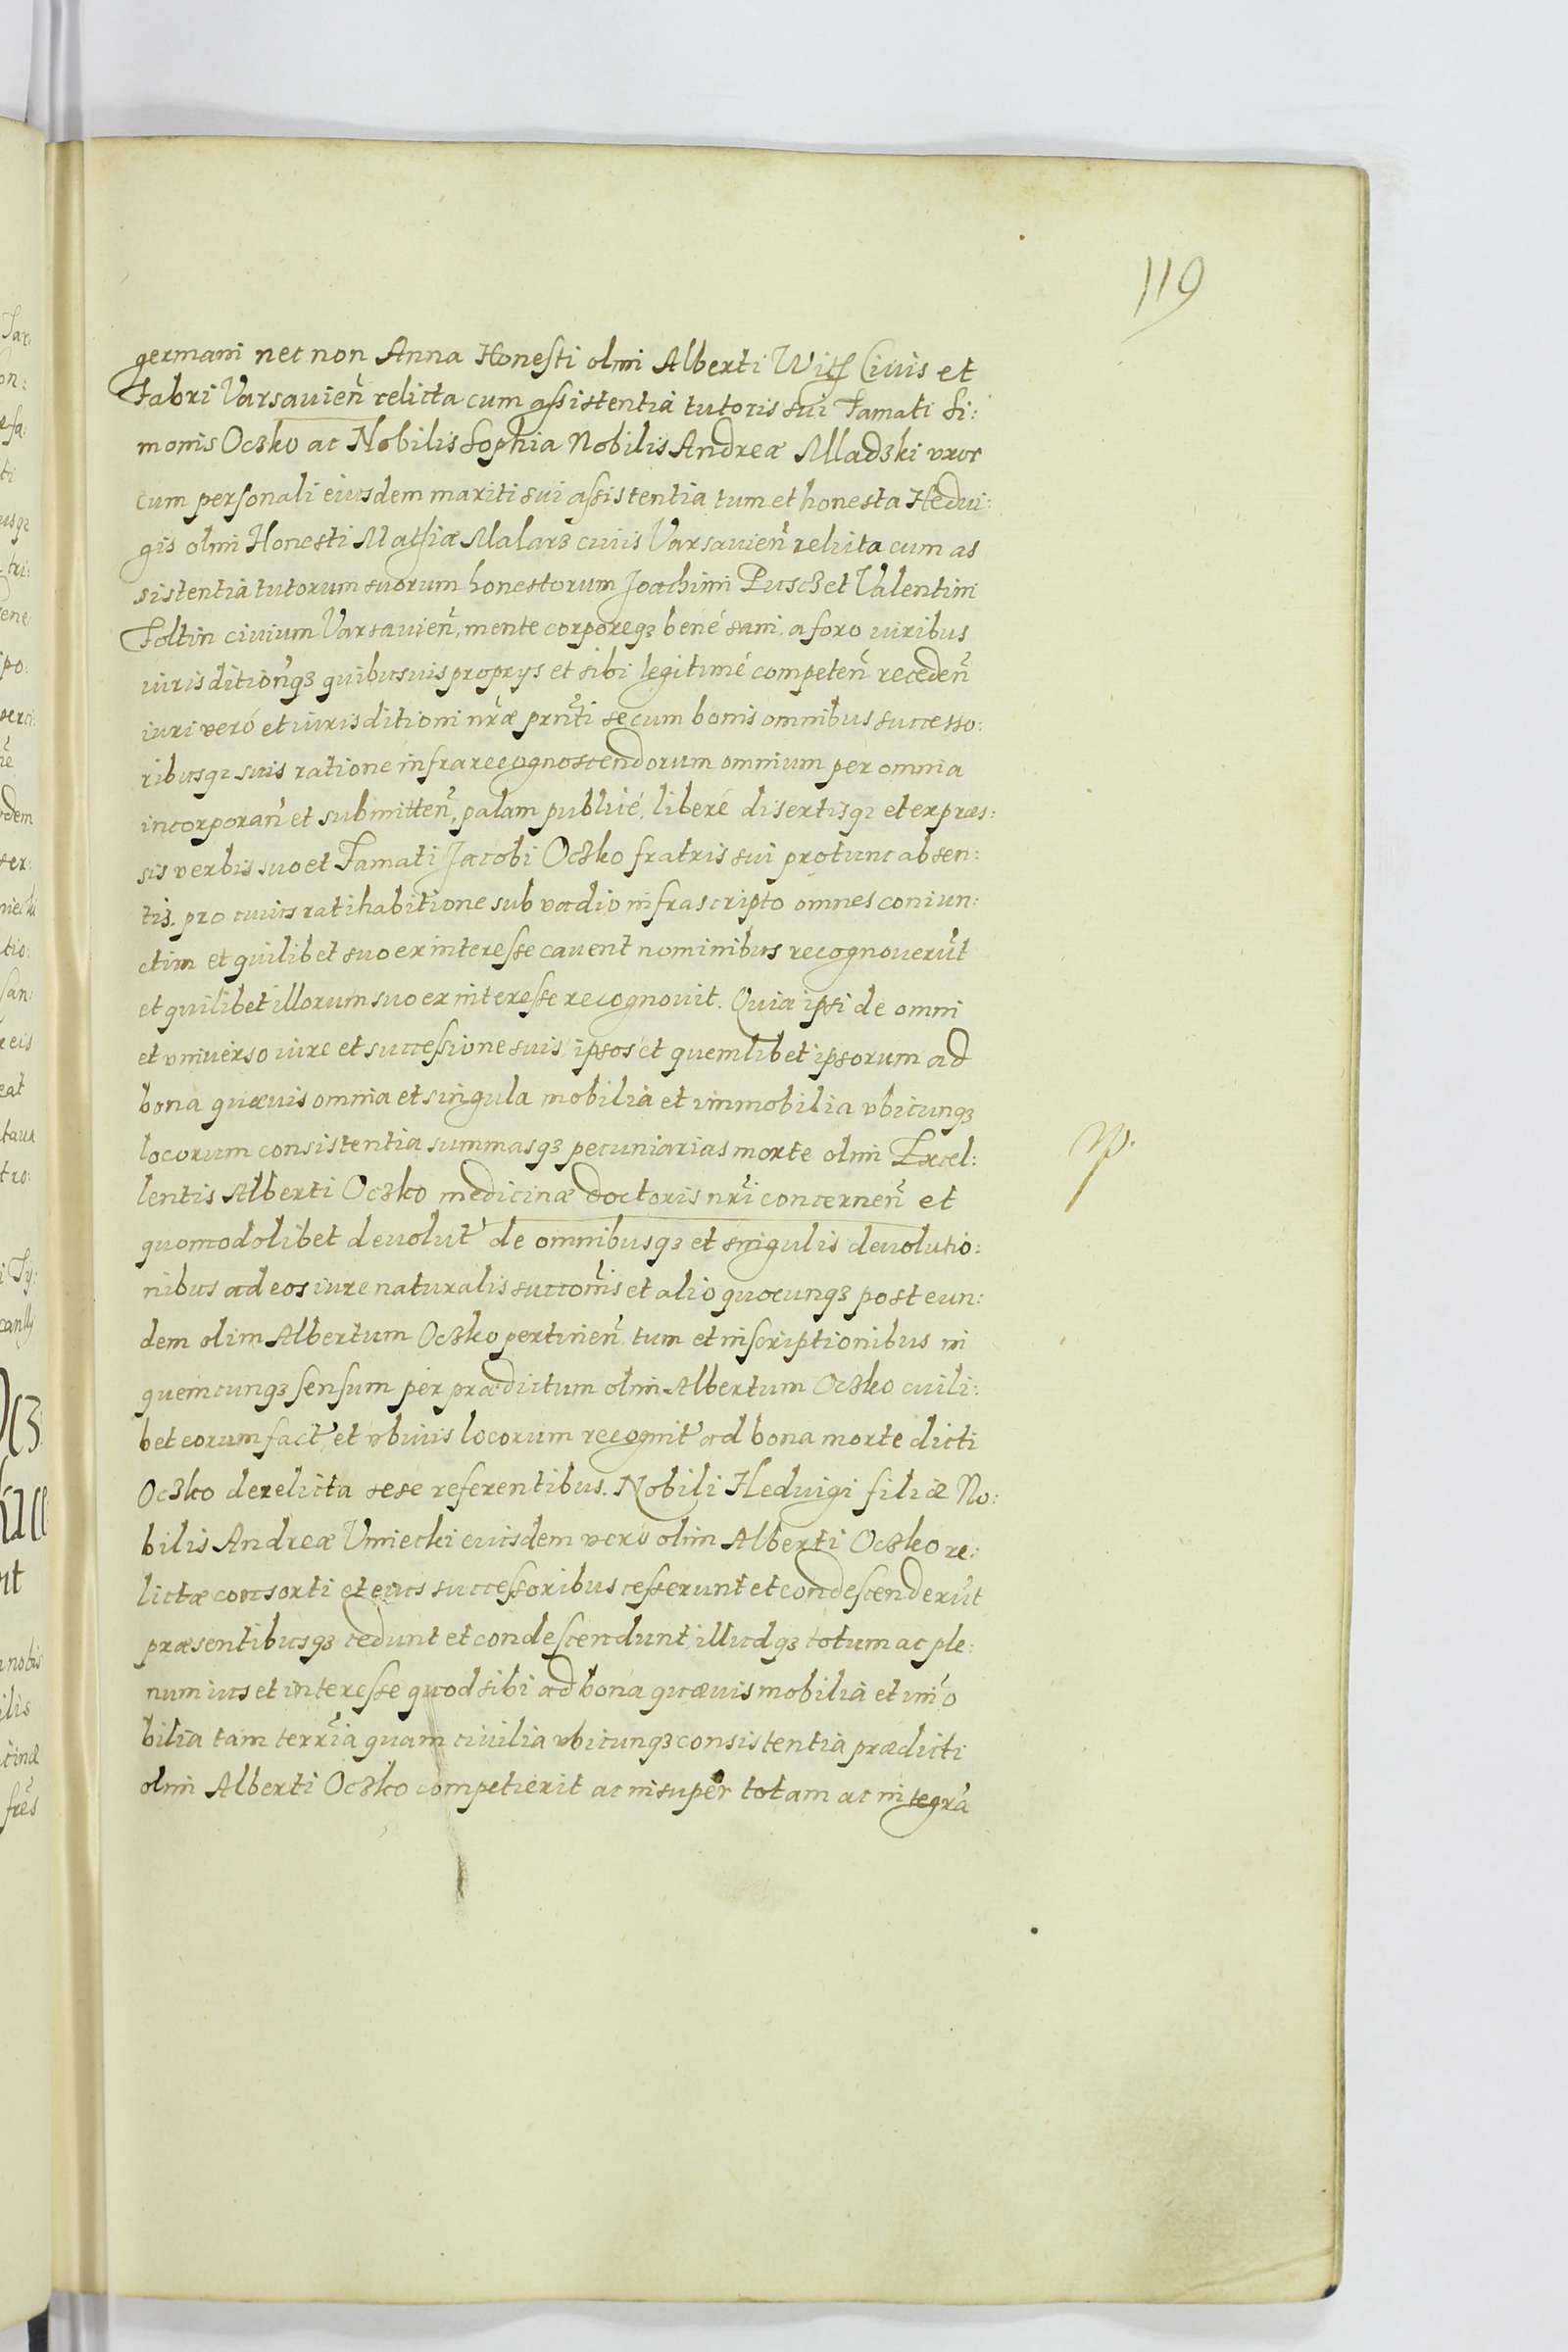 119
germani nec non Anna Honesti olim Alberti Civis et
Fabri Varsavien̄ relicta cum assistentia tutoris sui Famati Si:
monis Oczko ac Nobilis Sophia Nobilis Andreæ Mladzki uxor
cum personali eiusdem mariti sui assistentia tum et honesta Hedui:
gis olim Honesti Mathiæ Malarz civis Varsavien̄ relicta cum as
sistentia tutorum suorum honestorum Joachimi Pusch et Valentini
Foltin civium Varsavien̄, mente corporeqз bené sani, a foro iuribus
iurisditionq̄з quibusvis proprys et sibi legitimé competen̄ receden̄
iuri veró et iurisditioni nr̄æ prn̄ti se cum bonis omnibus successo:
ribusqз suis ratione infra recognoscendorum omnium per omnia
incorporan̄ et submitten̄, palam publicé, liberé disertisqз et expræs:
sis verbis suo et Famati Jacobi Oczko fratris sui protunc absen:
tis. pro cuius ratihabitione sub vadio infrascripto omnes coniun:
ctim et quilibet suo ex interesse cavent nominibus recognoverūt
et quilibet illorum suo ex interesse recognovit. Quia ipsi de omni
et universo iure et successione suis ipsos et quemlibet ipsorum ad
bona quævis omnia et singula mobilia et immobilia ubicunqз
locorum consistentia summasqз pecuniarias morte olim Excel:
lentis Alberti Oczko medicinæ doctoris nr̄i concernen̄ et
quomodolibet devolut' de omnibusqз et singulis devolutio:
nibus ad eos iure naturalis succon̄is et alio quocunqз post eun:
dem olim Albertum Oczko pertinen̄ tum et inscriptionibus in
quemcunqз sensum per prædictum olim Albertum Oczko cuili:
bet eorum fact' et ubivis locorum recognit' ad bona morte dicti
Oczko derelicta sese referentibus. Nobili Heduigi filiæ No:
bilis Andreæ Umiecki eiusdem vero olim Alberti Oczko re:
lictæ consorti et eius successoribus cesserunt et condescenderūt
præsentibusqз cedunt et condescendunt illudqз totum ac ple:
num ius et interesse quod sibi ad bona quævis mobilia et im̄o
bilia tam terrīa quam civilia ubicunqз consistentia prædicti
olim Alberti Oczko competierit ac insuper totam ac integrā